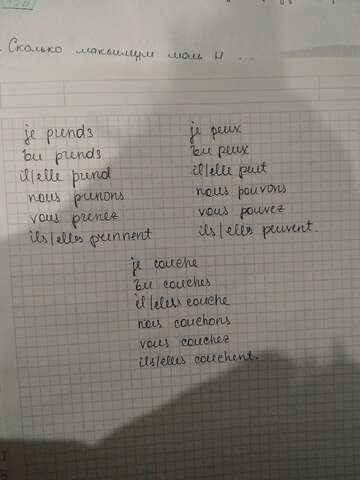 Сколько максимум моль H ...
je prends
tu prends
il/elle prend
nous prenons
vous prenez
ils/elles prennent
je peux
tu peux
il/elle peut
nous pouvons
vous pouvez
ils/elles peuvent.
je couche
tu couches
couche
nous couchons
vous couchez
ils/elles couchent.